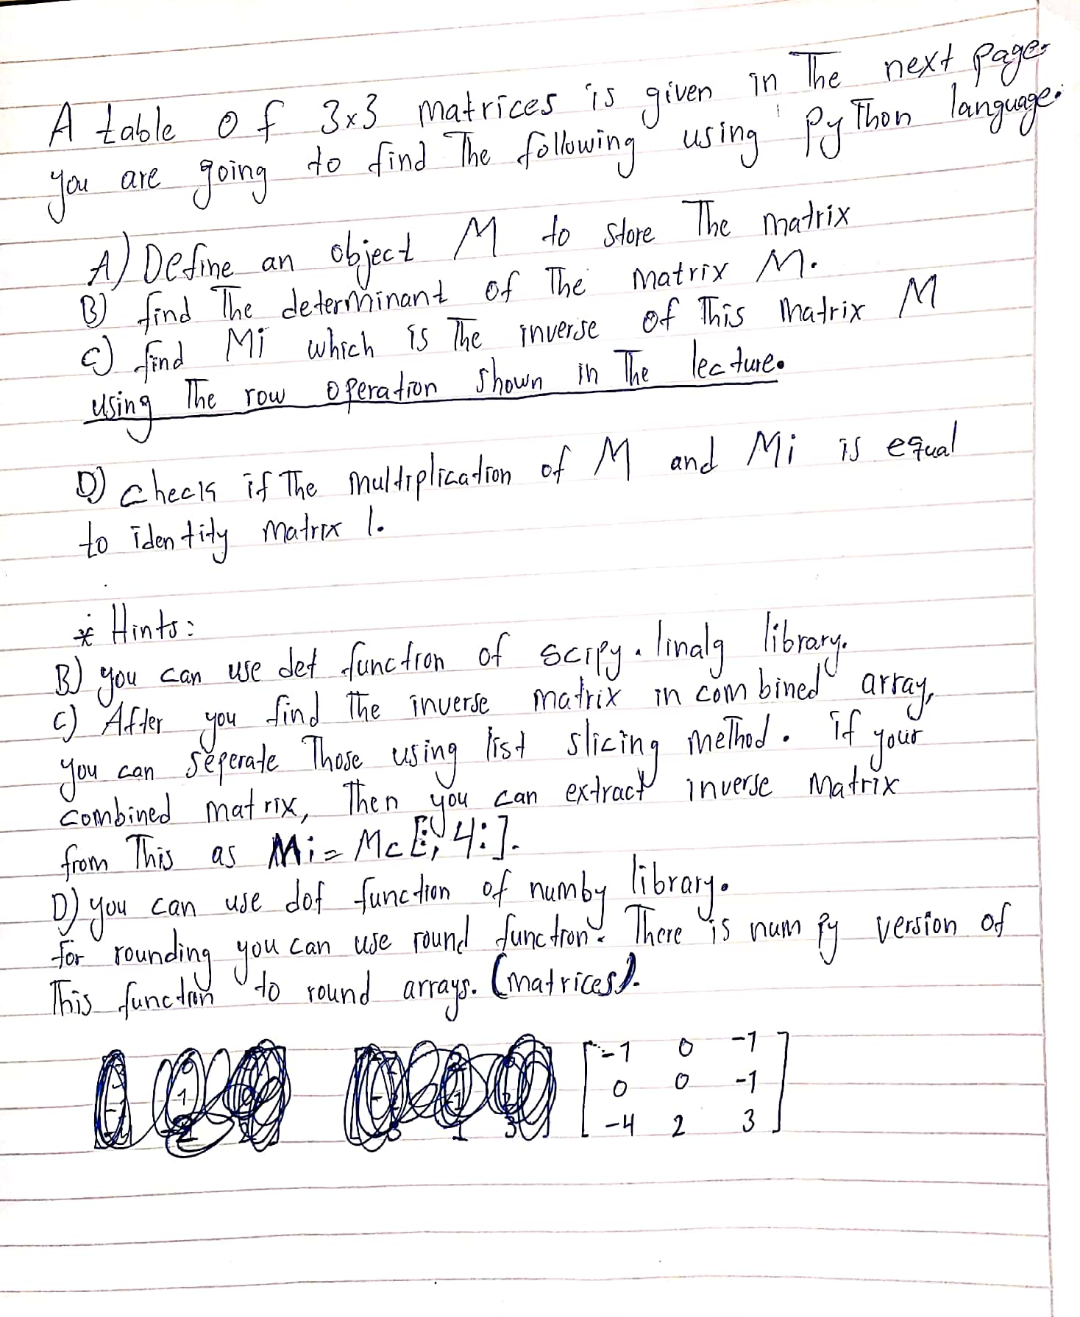 A table of 3x3 matrices is given in The next page.
you are going to find The following using Python language.
A) Define an object M to store The matrix
B) find The determinant of The matrix M.
C) find Mi which is The inverse of This matrix M
using The row operation shown in The lecture.
D) check if The multiplication of M and Mi is equal
to identity matrix I.
* Hints:
B) you can use det function of scipy.linalg library.
C) After you find The inverse matrix in combined array,
you can seperate Those using list slicing method. if your
combined matrix, Then you can extract inverse Matrix
from This as Mi = Mc[:,4:].
D) you can use dof function of numby library.
For rounding you can use round function. There is num py version of
This function to round arrays. (matrices).
-1 0 -1
0 0 -1
-4 2 3